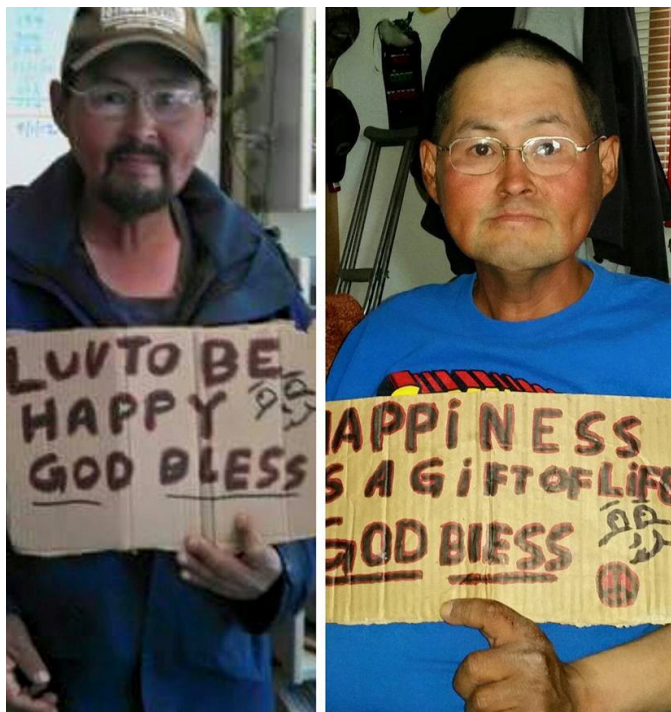 LUV TO BE
HAPPY
GOD BLESS
HAPPiNESS
S A GiFT OF LiFE
GOD BlESS